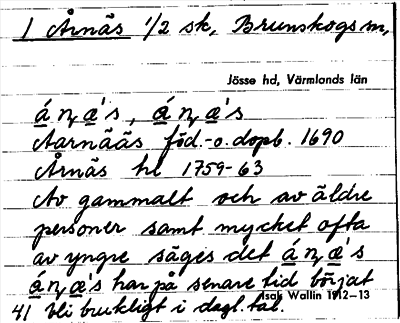 1 Årnäs 1/2 sk, Brunskogs sn,
Jösse hd, Värmlands län
á ņ a's, á ņ a's
Aarnääs föd.-o.dopb. 1690
Årnäs hl 1759-63
Av gammalt och av äldre
personer samt mycket ofta
av yngre säges det á ņ a's
á ņ a's har på senare tid börjat
Isak Wallin 1912-13
41 bli brukligt i dagl. tal.